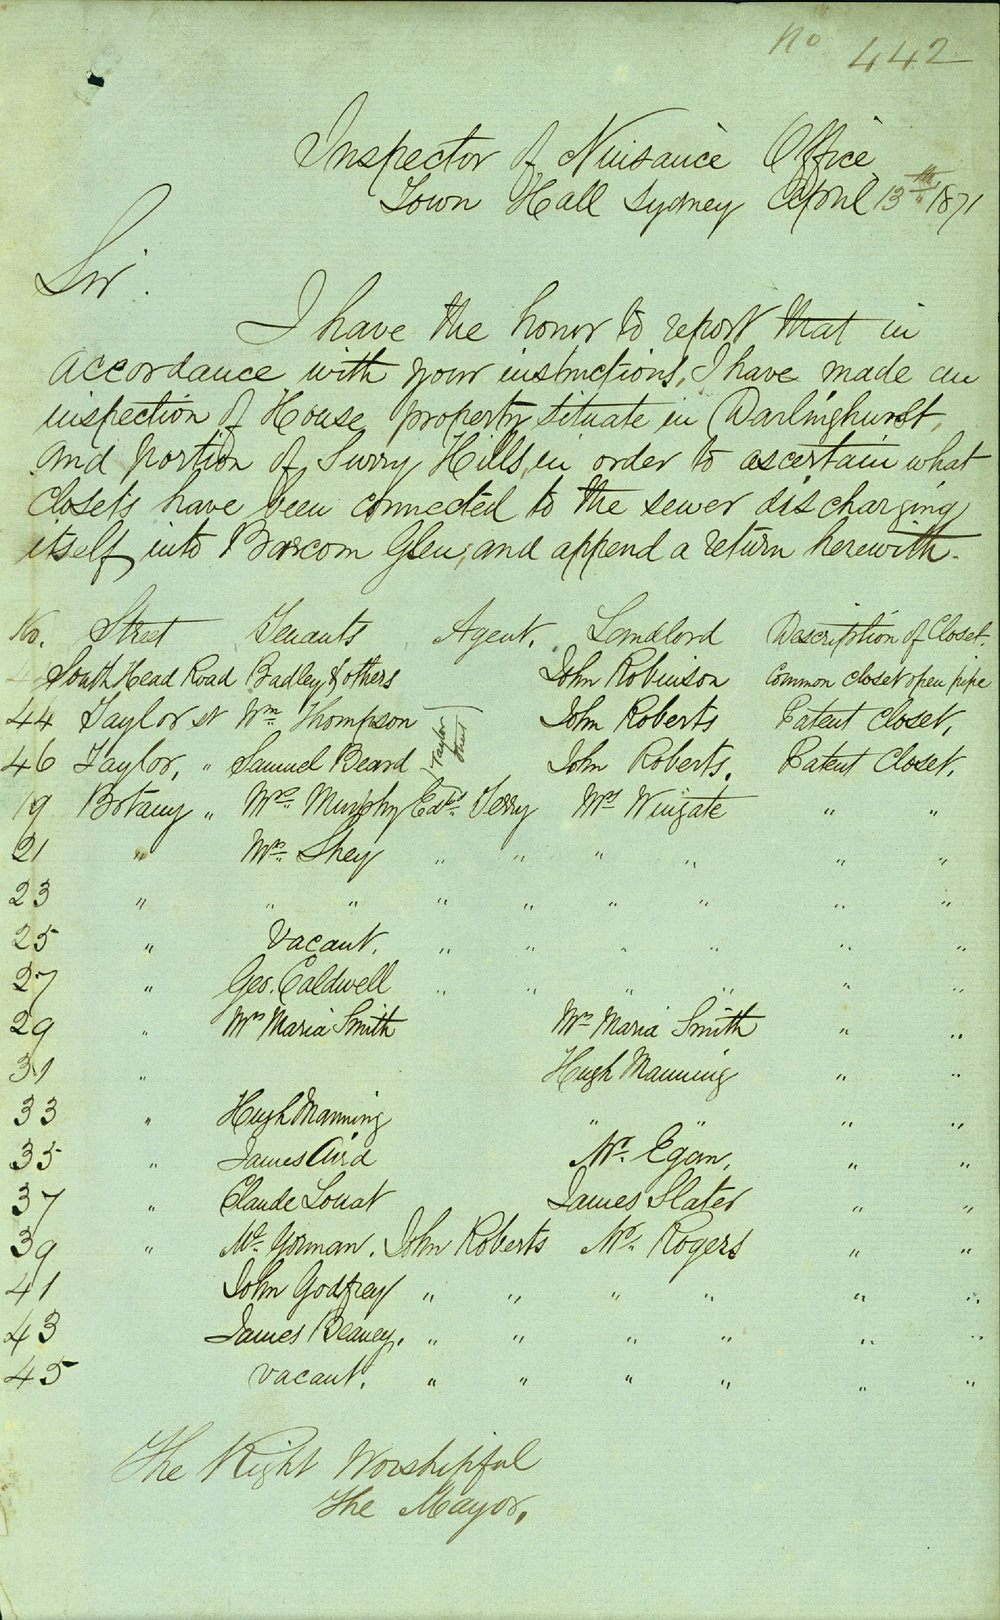 No 442
Inspector of Nuisance Office
Town Hall Sydney April 13th 1871
Sir.
I have the honor to report that in
accordance with your instructions, I have made an
inspection of House property situate in Darlinghurst,
and portion of Surry Hills, in order to ascertain what
Closets have been connected to the sewer discharging
itself into Barcom Glen, and append a return herewith.
No. Street Tenants Agent. Landlord Description of Closet.
South Head Road Badley & others John Robinson Common closet open pipe
44 Taylor st Wm Thompson John Roberts Patent Closet,
Taylor
46 Taylor, " Samuel Beard John Roberts. Patent Closet.
19 Botany " Mrs. Murphy Edwd. Terry Mrs Wingate " "
21 " Mrs. Shey " " " " " "
23 " " " " " " " " "
25 " Vacant. " " " " " "
27 " Geo. Caldwell " " " " " "
29 " Mrs Maria Smith Mrs Maria Smith " "
31 " Hugh Manning " "
33 " Hugh Manning " " " "
35 " James Aird Mr. Egan, " "
37 " Claude Louat James Slater " "
39 " Mr. Gorman. John Roberts Mr. Rogers " "
41 John Godfrey " " " " " "
43 James Beaney. " " " " " "
45 vacant. " " " " " "
The Right Worshipful
The Mayor.